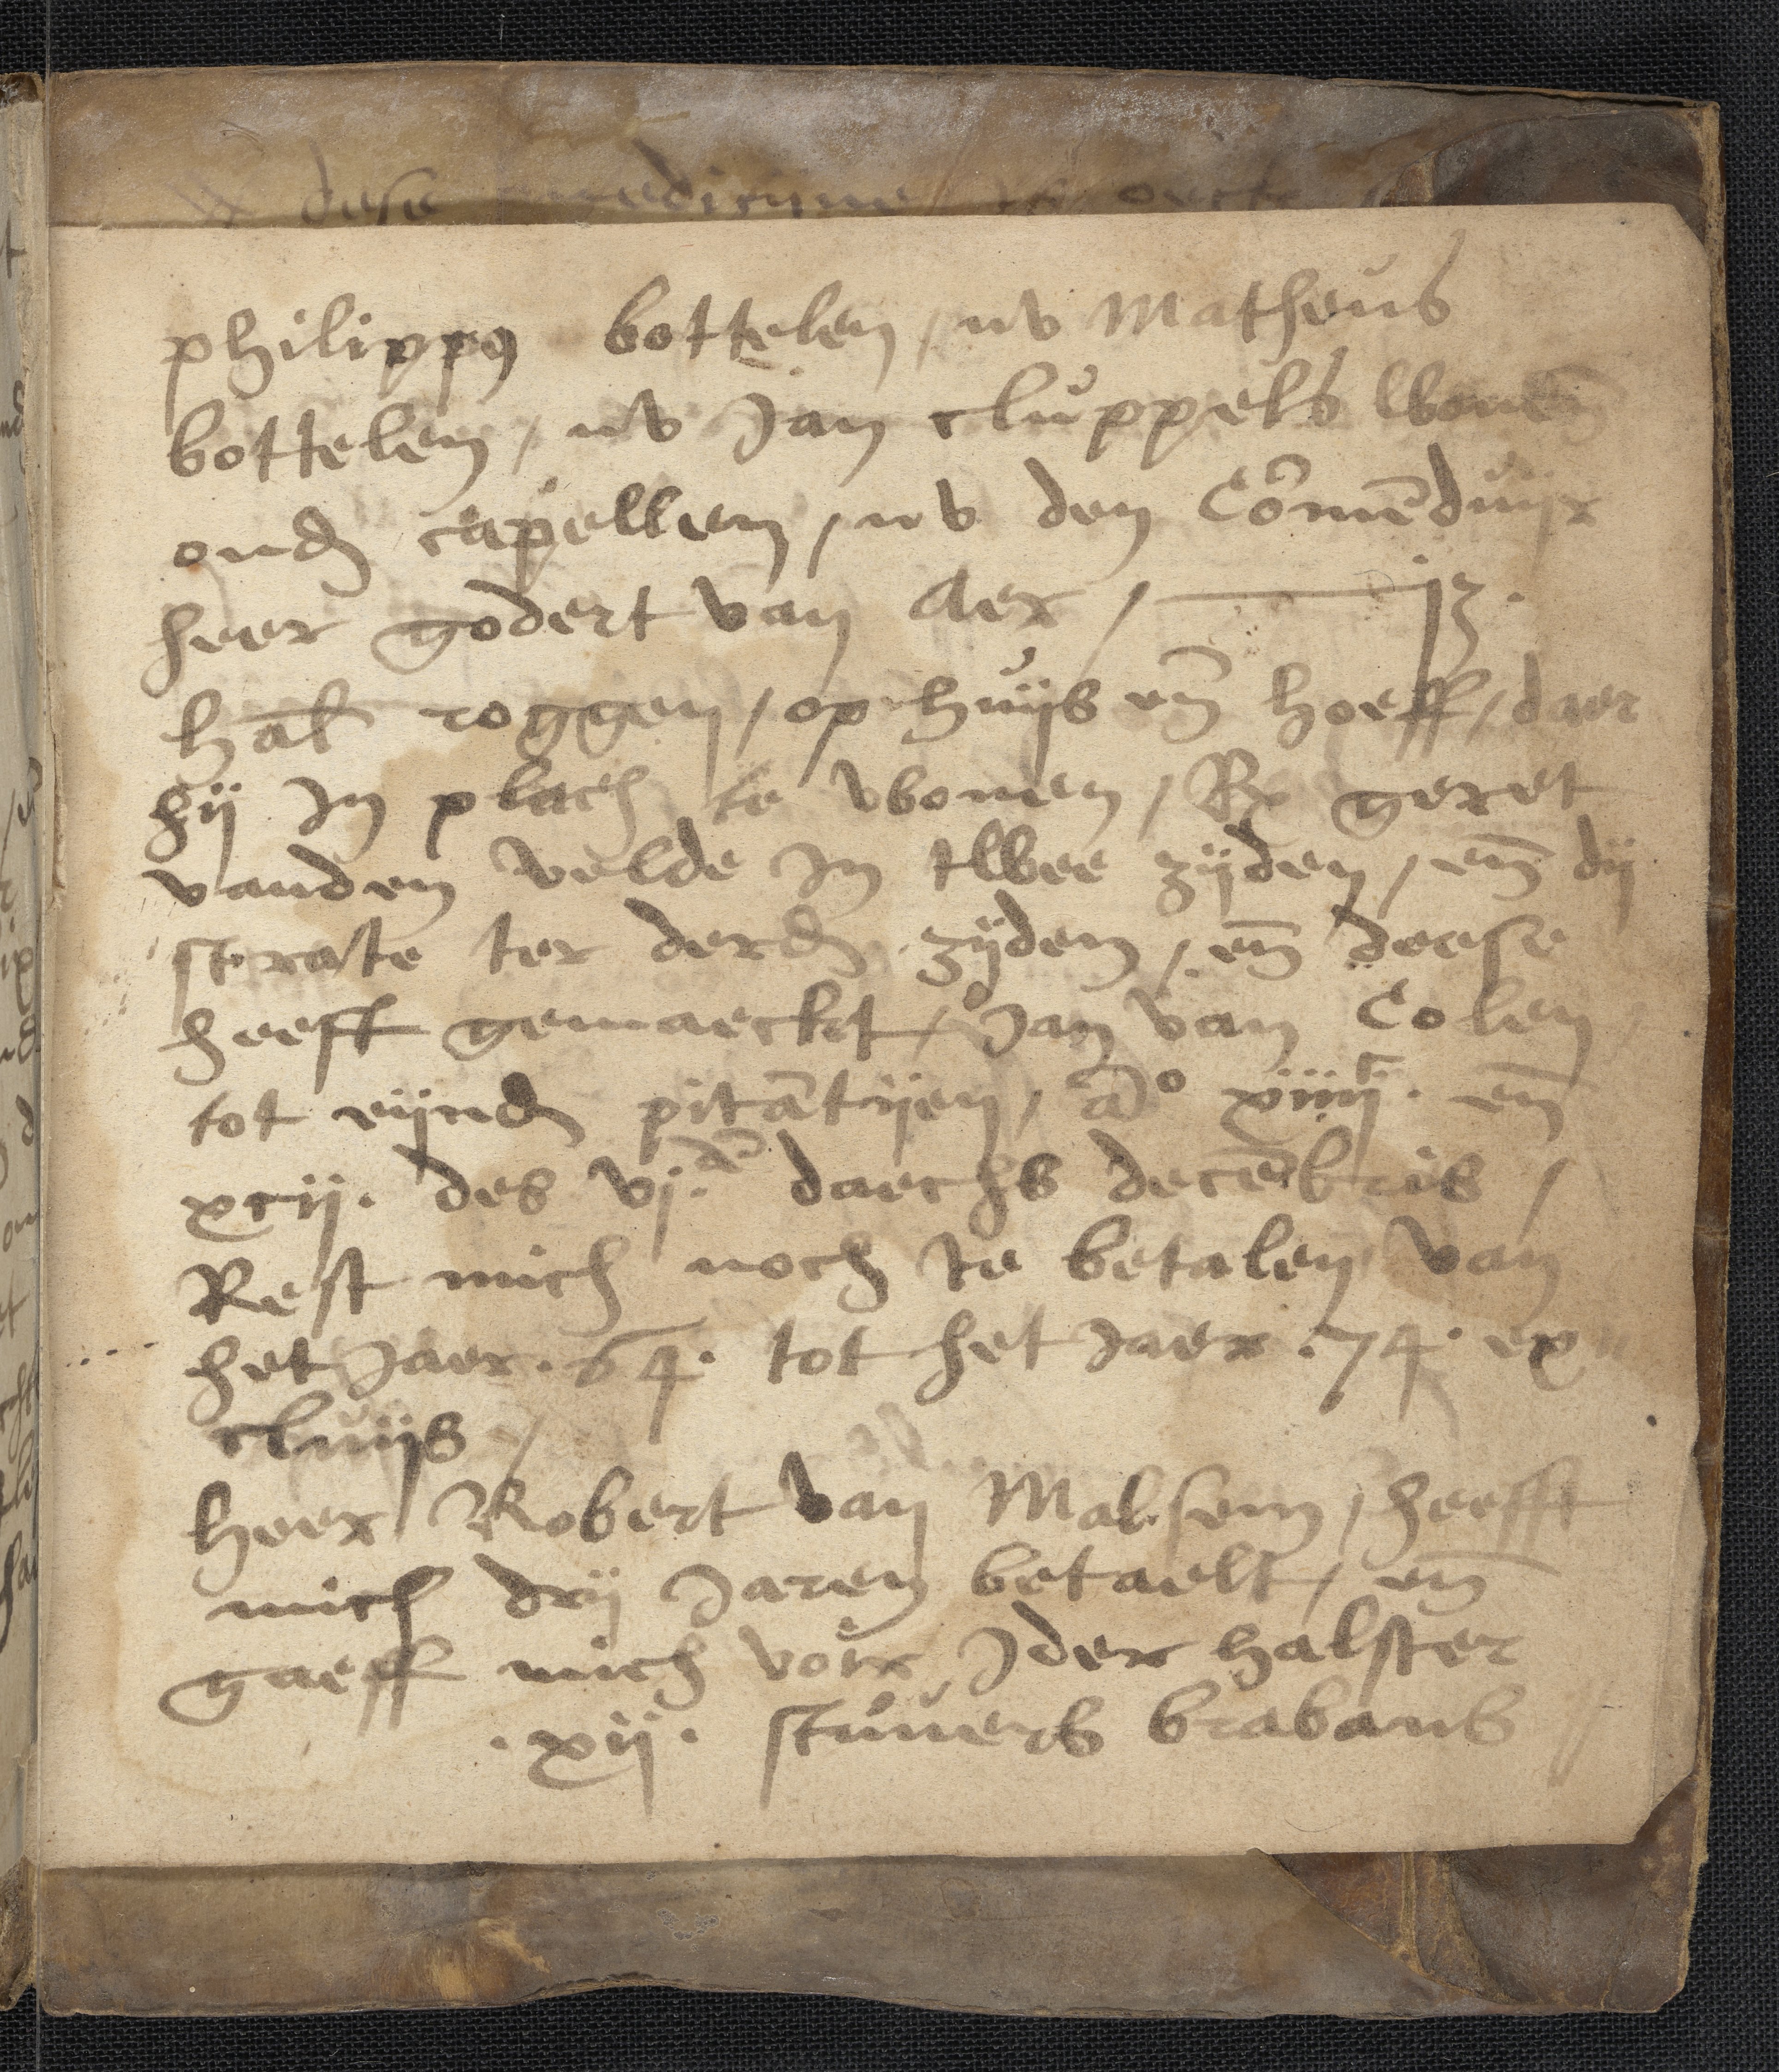 dese medicijnne
philippꝯ bottelen / nv Matheus
bottelen / nv Jan cluppels wonen̄
ond͛ capellen / nv den Co᷑mēduijr
heer godert van Aer / ———— jʒ.
hal̄ roggen / op huijs en̄ hoeff / daer
hij In plach te wonen / Rx geret
vanden velde In twee zijden / en̄ dij
strate ter derd͛ zijden / en̄ deese
heeft gemaeckt / Jan van Colen
tot eijnd͛ pitātijen / a͞o xiiijͨ. en̄
xcij. des vj.ᵈᵉ daechs decēbris /
Rest mich noch te betalen van
het Jaer .64. tot het Jaer .74. ex
cluijs /
Heer Robert van Malsem / heefft
mich drij Jaren betaelt / en̄
gaeff mich voir Jder halster
.xij. stuuers brabans